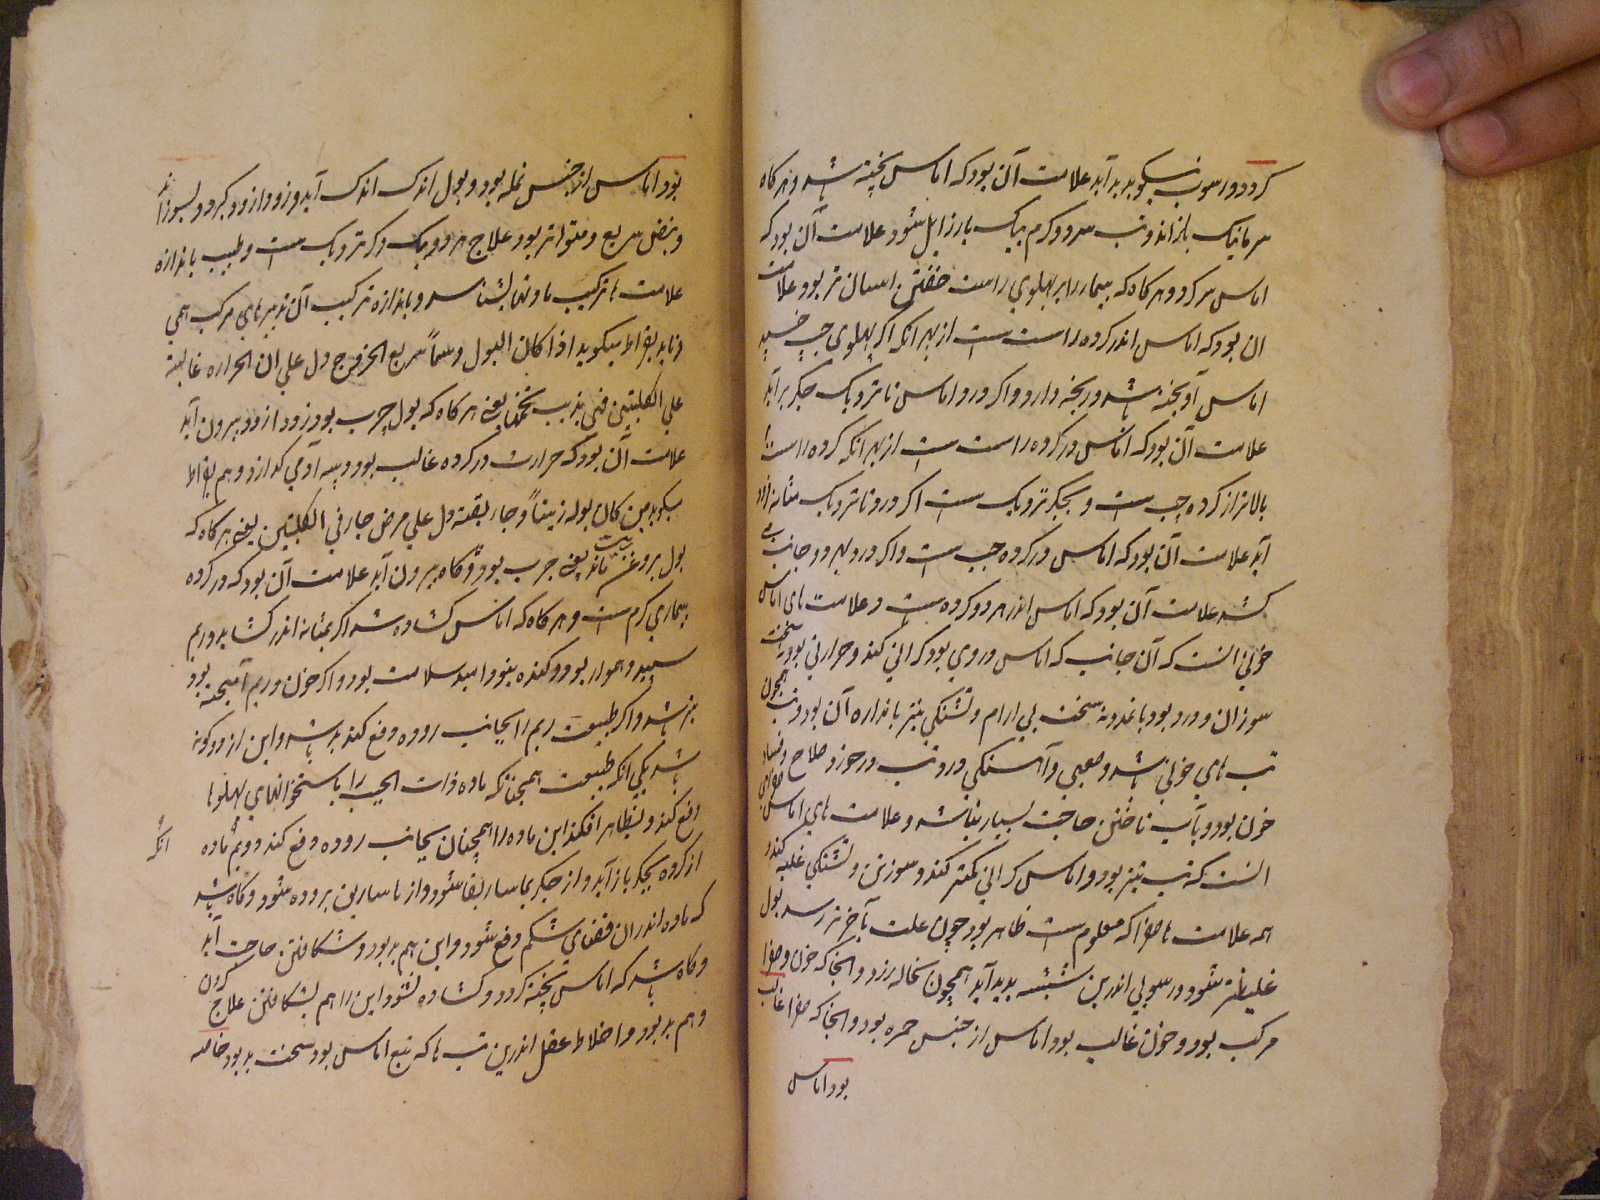 کردد و رسوب نیکو پدید آید علامت آن بود که اماس پخته شد و هر کاه
سرمانیک بلرزاند و تب سرد و کرم بیک بار زایل شود علامت آن بود که
اماس سر کرد و هر کاه که بیمار را بر پهلوي راست خفتن اسان تر بود علامت
ان بود که اماس اندر کرده راست است از بهر انکه اکر بپهلوي چپ خسپد
اماس آویخته باشد و رنجه دارد و اکر درد اماس تا نزدیک جکر برآید
علامت آن بود که اماس در کرده راست است از بهر انکه کرده راست
بالاتر از کرده چپ است و بجکر نزدیک است اکر درد تا نزدیک مثانه فرود
آید علامت آن بود که اماس در کرده چپ است و اکر درد بهر دو جانب می
کشد علامت آن بود که اماس اندر هر دو کرده است و علامت هاي اماس
خوني انست که آن جانب که اماس در وي بود کراني کند و حرارتي بود نه سخت
سوزان و درد بود با تمدد نه سخت بي ارام و تشنکي نیز باندازه آن بود و تب همچون
تب هاي خوني باشد و صعبي و آهستکي درد و تب در خورد صلاح و فساد
خون بود و بآب تاختن حاجت بسیار نباشد و علامت هاي اماس صفراي
انست که تب تیز بود و اماس کراني کمتر کند و سوزش و تشنکي غلبه کند و
همه علامت ها صفرا که معلوم است ظاهر بود چون علت بآخر رسد بول
غلیظتر شود و رسوبي اندر بن شیشه پدید آید همچون نخاله زرد و انجا که خون و صفرا
مرکب بود و خون غالب بود اماس از جنس حمره بود و انجا که صفرا غالب
بود اماس
بود اماس از جنس نمله بود و بول اندک اندک آید و زود از زود بکردد و بسوزاند
و نبض سریع و متواتر بود علاج هر دو بیک دکر نزدیک است و طبیب باندازه
علامت ها ترکیب مادتها بشناسد و باندازه ترکیب آن تدبیرهاي مرکب همي
فرماید بقراط میکوید اذا کان البول دسماً سریع الخروج دل علي ان الحراره غالبة
علي الکلیتین فهي یذیب شحمهما یعني هر کاه که بول چرب بود زود از زود بیرون آید
علامت آن بود که حرارت در کرده غالب بود و پیه آدمي کدازد و هم بقراط
میکوید من کان بوله زیتیاً و جار بقته دل علي مرض حار في الکلیتین یعني هر کاه که
بول بروغن زیت ماند یعني چرب بود و کاه بیرون آید علامت آن بود که در کرده
بیماري کرم است و هر کاه که اماس کشاده شد اکر بمثانه اندر کشاید و ریم
سپید و هموار بود و کنده نبود امید سلامت بود و اکر خون و ریم آمیخته بود
بتر باشد و اکر طبیعت ریم را بجانب روده دفع کند بد باشد و این از دو کونه
باشد یکي انکه طبیعت همچنانکه ماده ذات الجنب را باستخوانهاي پهلوها
دفع کند و بظاهر افکند این ماده را همچنان بجانب روده دفع کند و دویم انکه ماده
از کرده بجکر باز آید و از جکر بماساریقا شود و از ماساریق بروده شود و کاه باشد
که ماده اندران فضاي شکم دفع شود و این هم بد بود و بشکافتن حاجت آید
و کاه باشد که اماس پخته کردد و کشاده نشود این را هم بشکافتن علاج کردن
و هم بد بود و اختلاط عقل اندرین تب ها که تبع اماس بود سخت بد بود خاصه